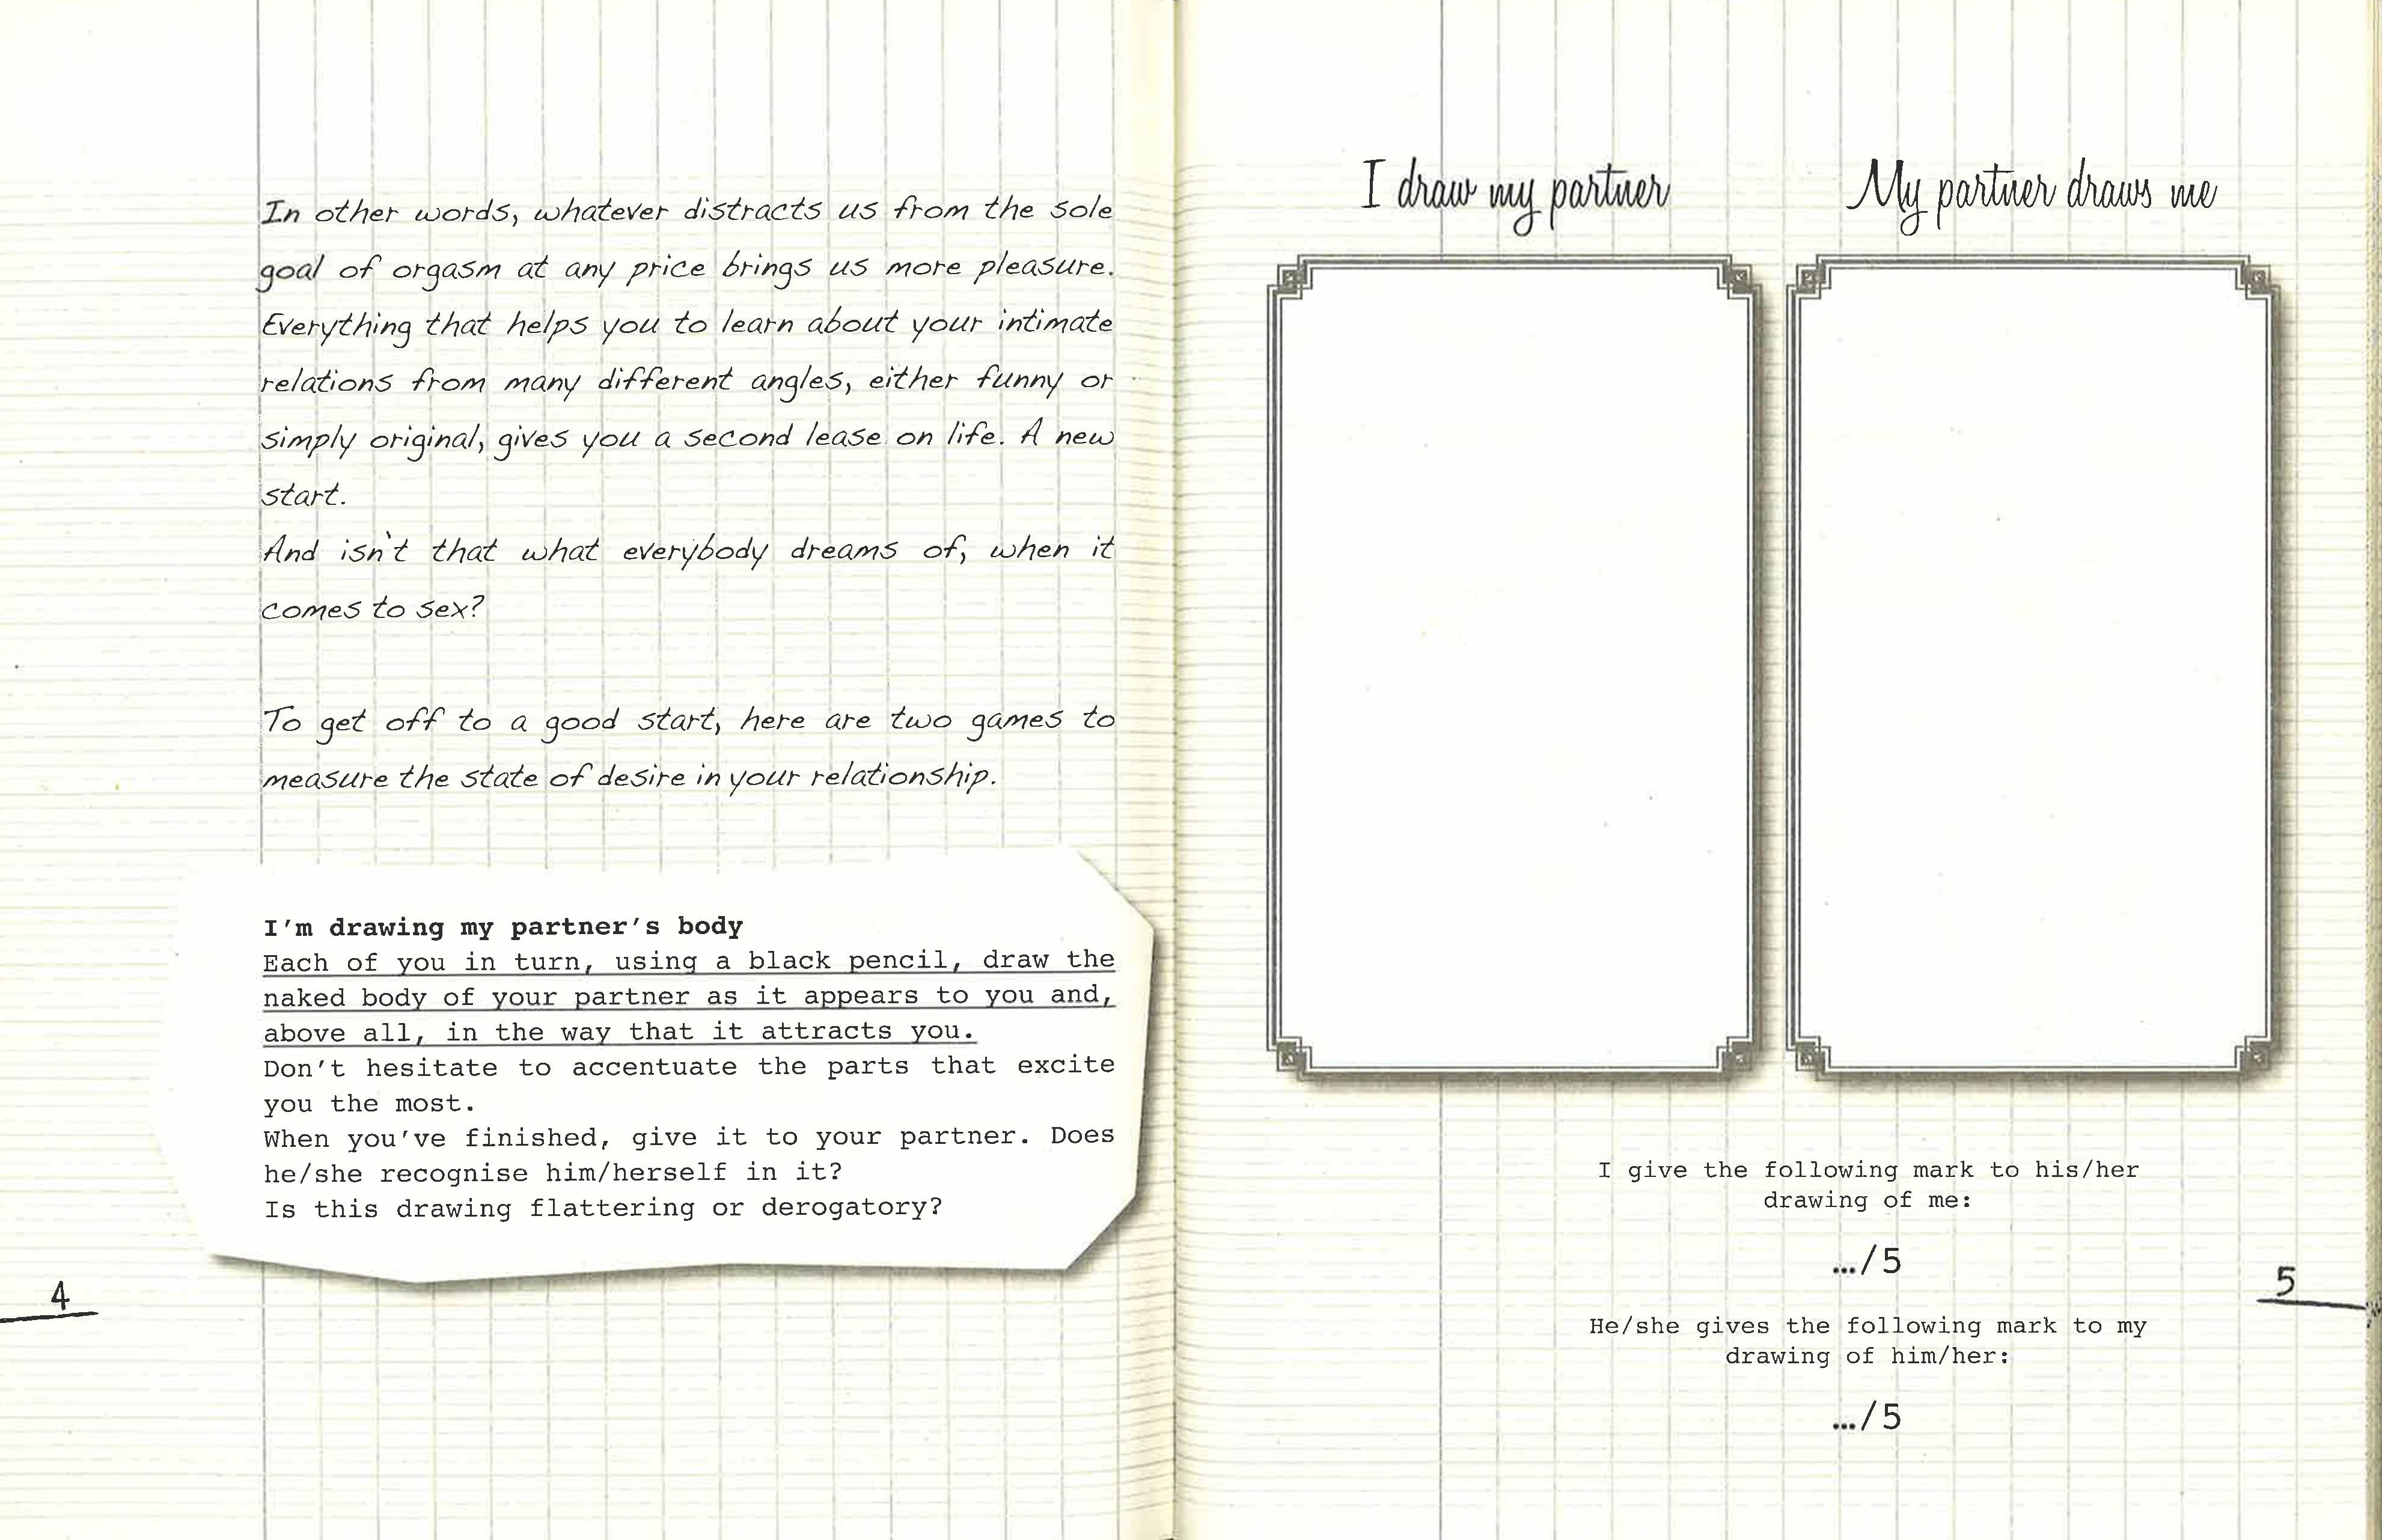 In other words, whatever distracts us from the sole
goal of orgasm at any price brings us more pleasure.
Everything that helps you to learn about your intimate
relations from many different angles, either funny or
simply original, gives you a second lease on life. A new
start.
And isn't that what everybody dreams of, when it
comes to sex?
To get off to a good start, here are two games to
measure the state of desire in your relationship.
I'm drawing my partner's body
Each of you in turn, using a black pencil, draw the
naked body of your partner as it appears to you and,
above all, in the way that it attracts you.
Don't hesitate to accentuate the parts that excite
you the most.
When you've finished, give it to your partner. Does
he/she recognise him/herself in it?
Is this drawing flattering or derogatory?
4
I draw my partner
My partner draws me
I give the following mark to his/her
drawing of me:
.../5
He/she gives the following mark to my
drawing of him/her:
.../5
5